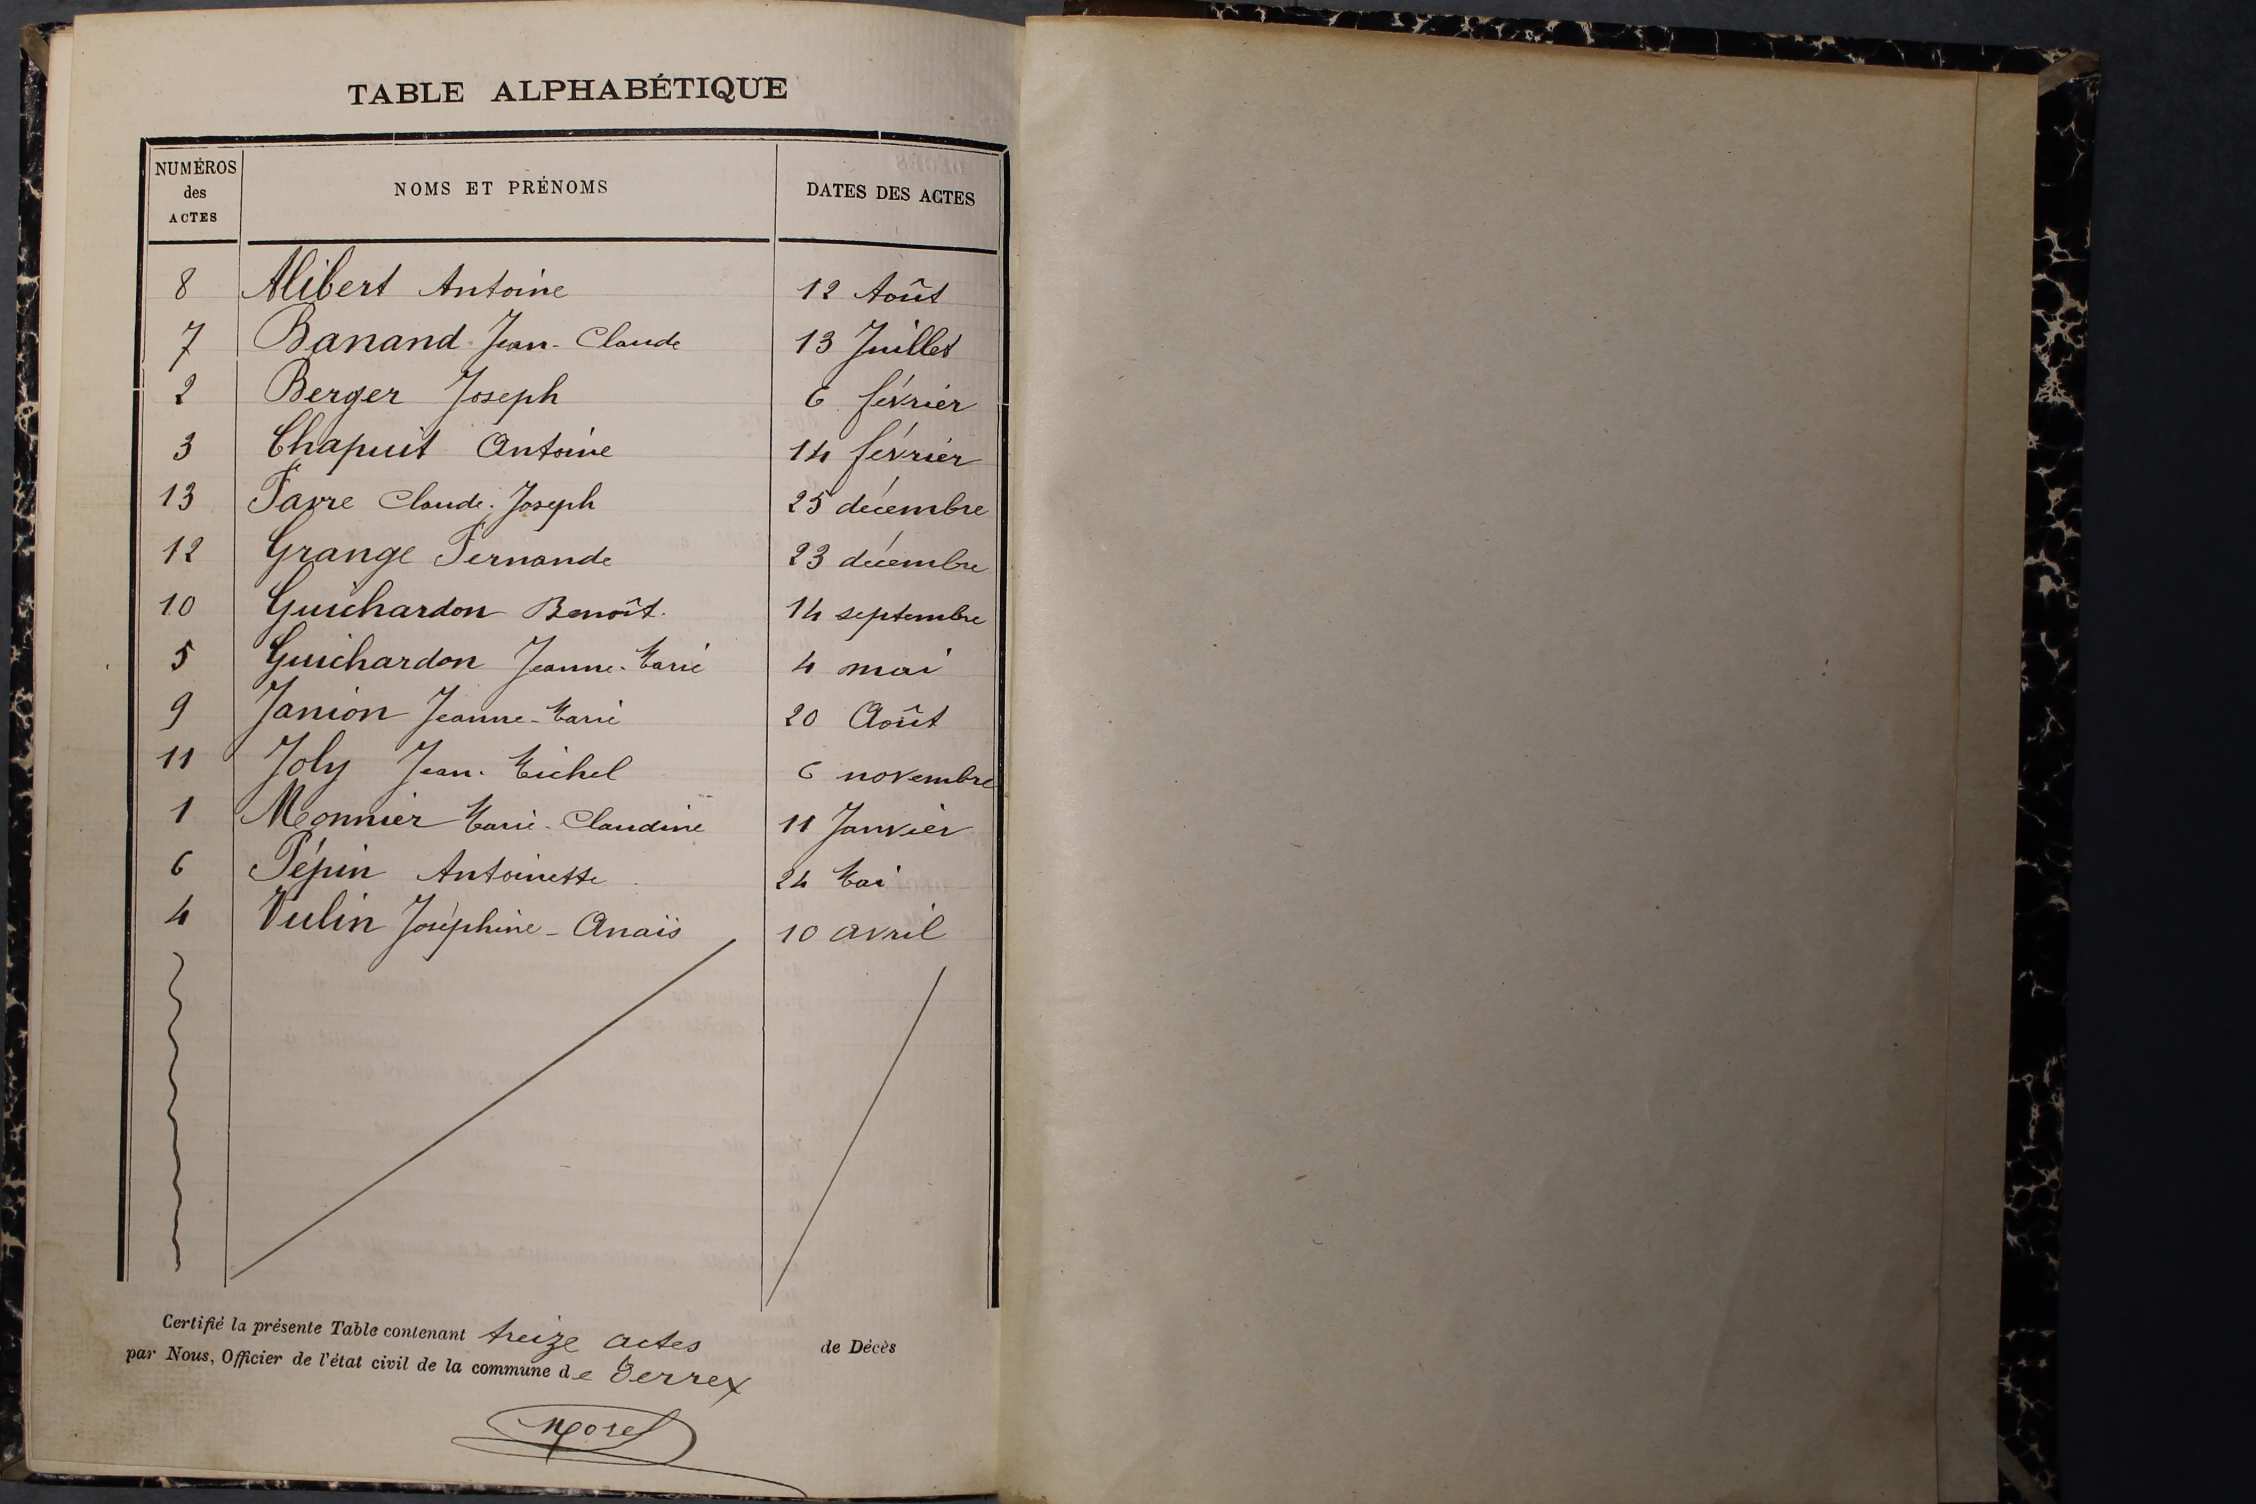 TABLE ALPHABÉTIQUE
NUMÉROS des ACTES NOMS ET PRÉNOMS DATES DES ACTES
8 Alibert Antoine 12 Août
7 Banand Jean-Claude 13 Juillet
2 Berger Joseph 6 février
3 Chapuit Antoine 14 février
13 Favre Claude-Joseph 25 décembre
12 Grange Fernande 23 décembre
10 Guichardon Benoît 14 septembre
5 Guichardon Jeanne-Marie 4 mai
9 Janion Jeanne-Marie 20 Août
11 Joly Jean-Michel 6 novembre
1 Monnier Marie-Claudine 11 Janvier
6 Pépin Antoinette 24 Mai
4 Vulin Joséphine-Anaïs 10 avril
Certifié la présente Table contenant treize actes de Décès
par Nous, Officier de l'état civil de la commune de
Morel